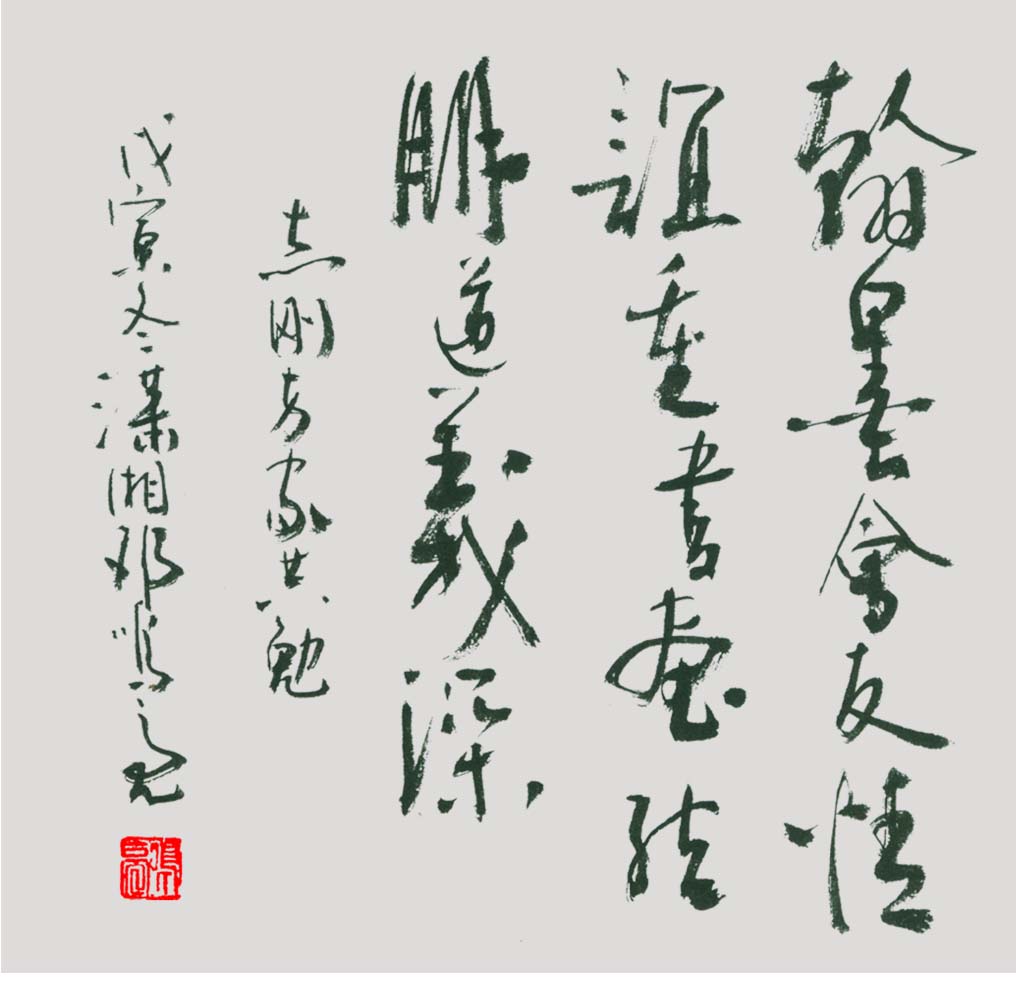 翰墨會友情
誼重書畫結
朋道義深
志刚方家共勉
戊寅冬潇湘邓鸣亮